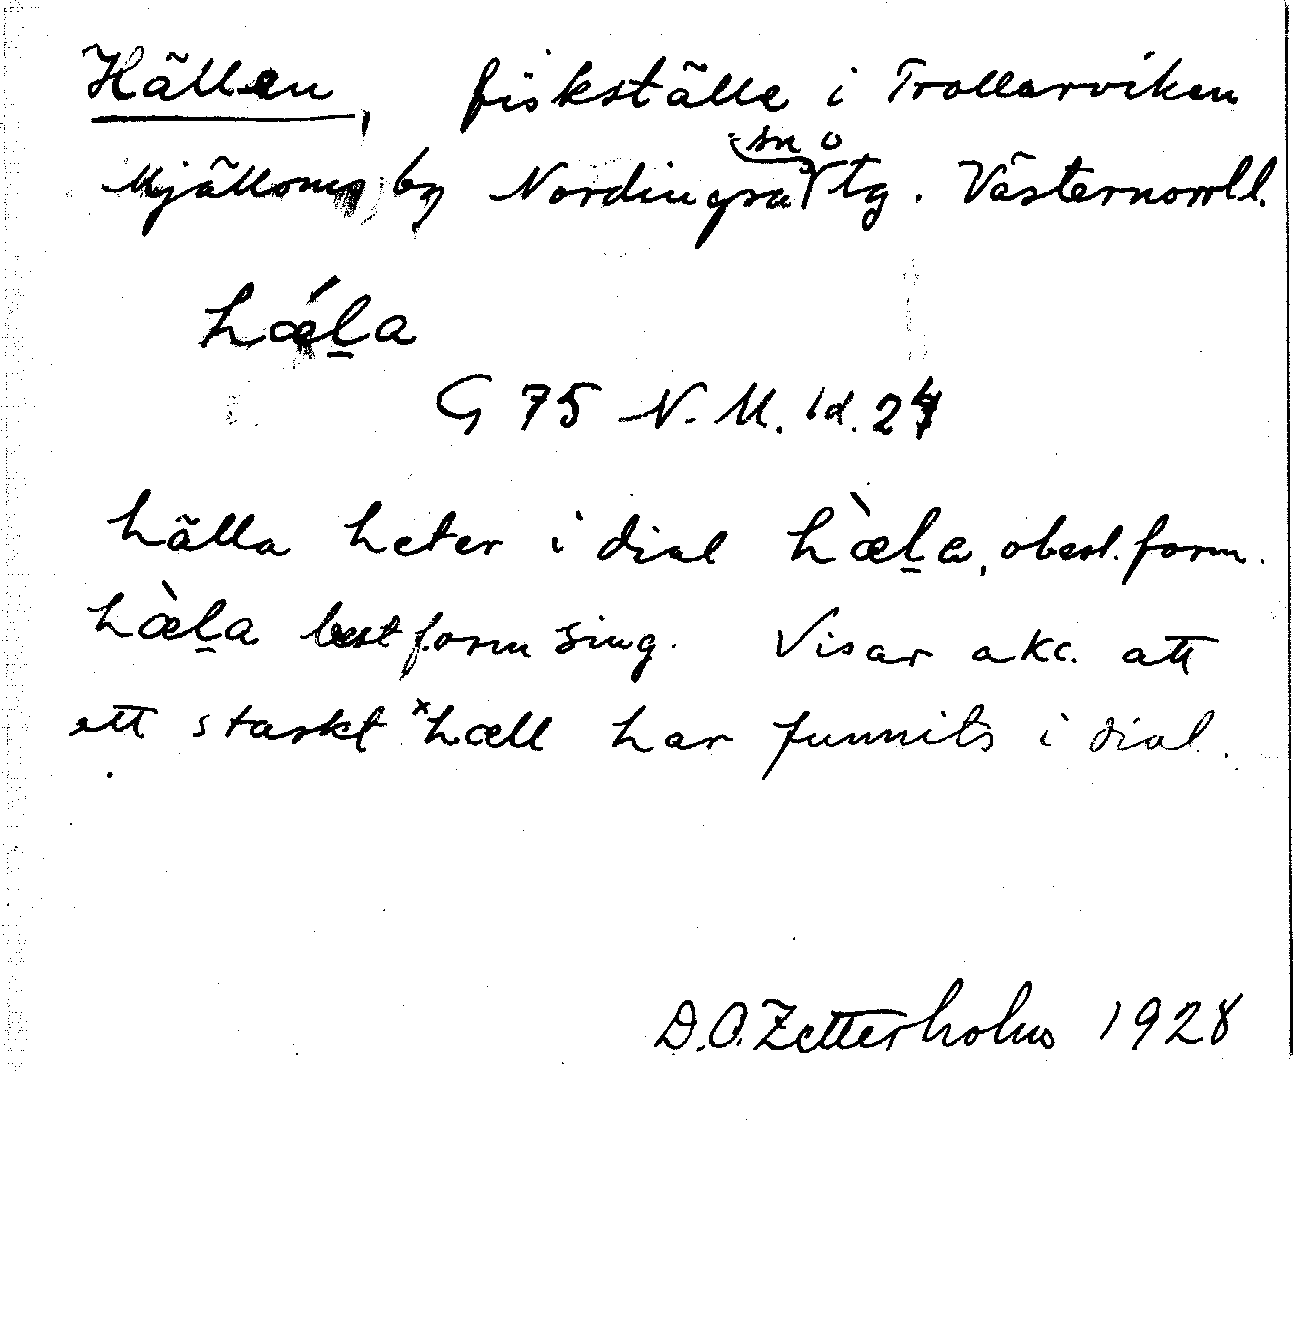 Hällen, fiskställe i Trollarviken
Mjälloms by Nordingrå sn o tg. Västernorrl.
hǽl̲a
G 75 N. M. Id. 24
hälla heter i dial hæ̀l̲a, obest. form.
hæ̀l̲a best form sing. Visar akc. att
ett starkt ˣhæll har funnits i dial.
D.O. Zetterholm 1928